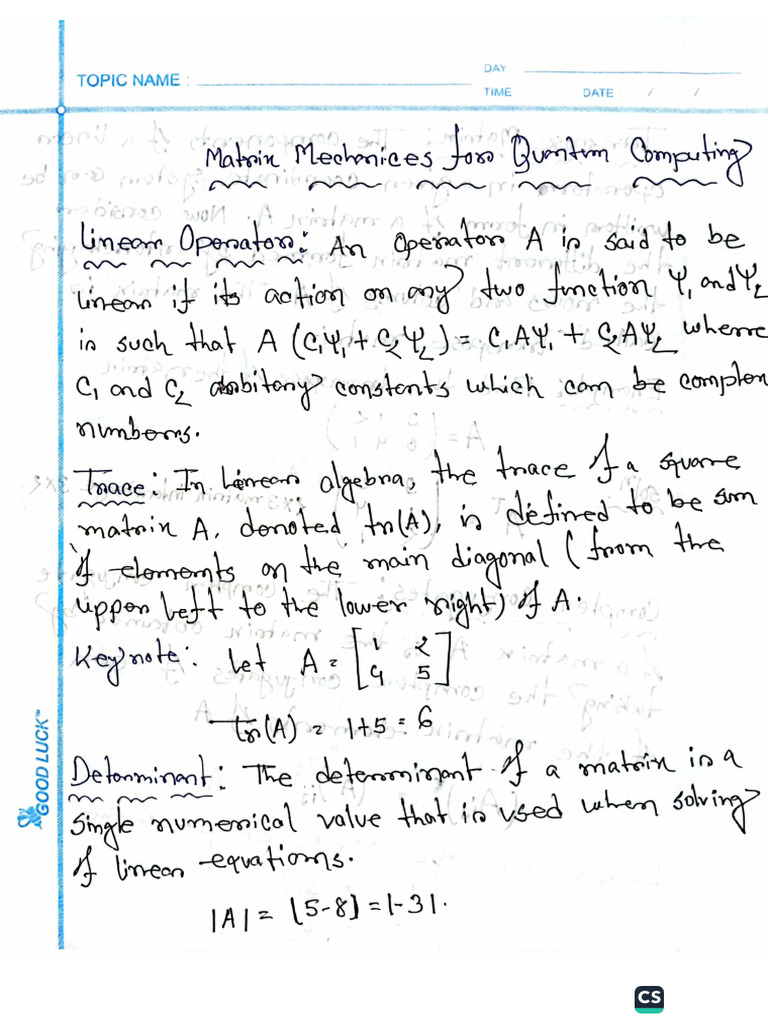 TOPIC NAME :
DAY
TIME DATE / /
Matrix Mechanices for Quantum Computing
Linear Operator: An operator A is said to be
linear if its action on any two function Ψ₁ and Ψ₂
is such that A (C₁Ψ₁ + C₂Ψ₂) = C₁AΨ₁ + C₂AΨ₂ where
C₁ and C₂ arbitary constants which can be complex
numbers.
Trace: In Linear algebra, the trace of a square
matrix A, denoted tr(A), is defined to be sum
of elements on the main diagonal (from the
upper left to the lower right) of A.
Keynote: Let A = [1 2
4 5]
tr(A) = 1+5 = 6
Determinant: The determinant of a matrix is a
single numerical value that is used when solving
of linear equations.
|A| = |5-8| = |-3|.
GOOD LUCK™
CS